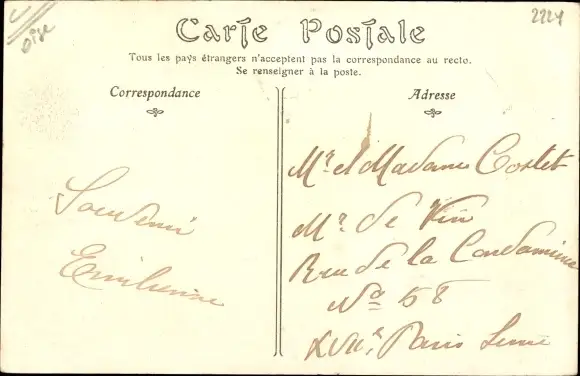 Oise
2224
Carte Postale
Tous les pays étrangers n'acceptent pas la correspondance au recto.
Se renseigner à la poste.
Correspondance
Adresse
Souvenir
Emilienne
Mr et Madame Costet
Md de Vin
Rue de la Condamine
No 58
XVIIe Paris Seine